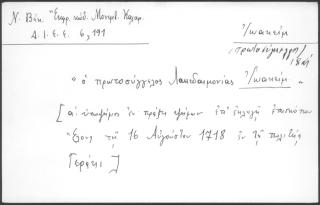 Ν. Βέη. Ἔκφρ. κώδ. Μονεμβ. Καλαμ.
Δ. Ι. Ε. Ε. 6, 191
Ἰωακείμ
(πρωτοσύγγελλος)
" ὁ πρωτοσύγγελος Λακεδαιμονίας Ἰωακείμ "
[αἱ ὑπογράφων ἐν πράξει ψήφων ἐπὶ ἐκλογῇ ἐπισκόπου
Ἕλους τῇ 16 Αὐγούστου 1718 ἐν τῇ πολιτείᾳ
Γεράκι]